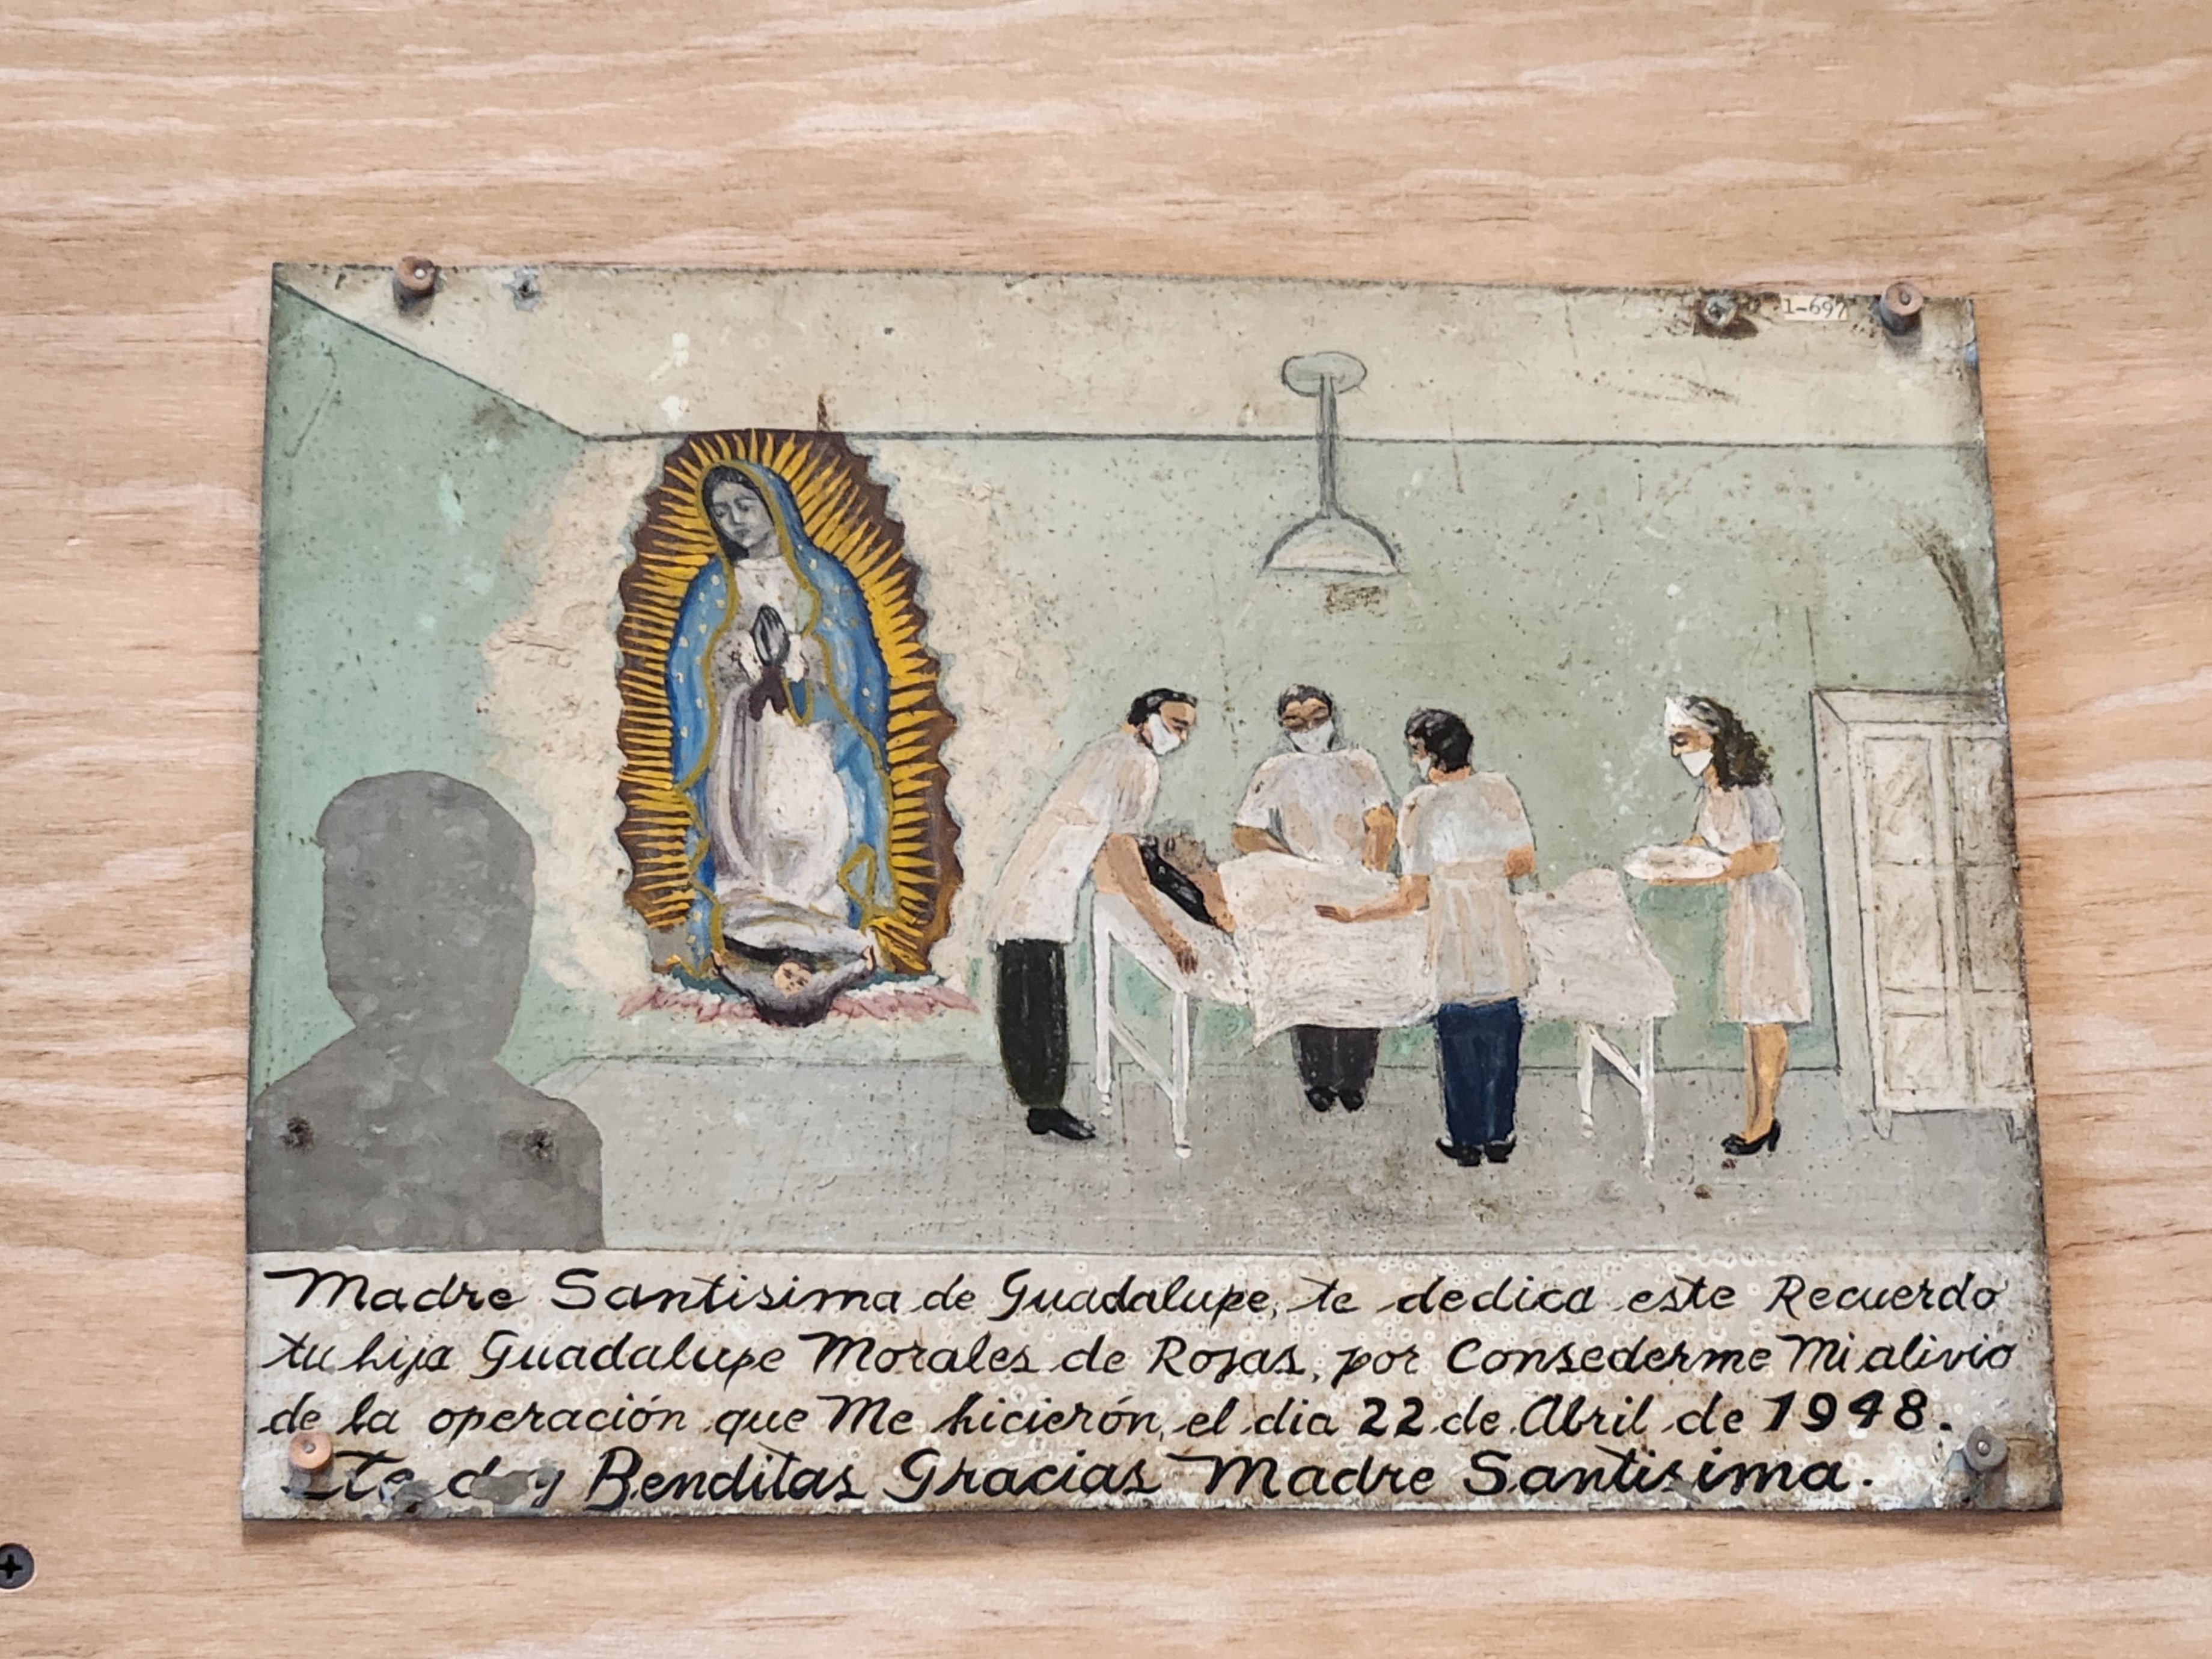 1-697
Madre Santisima de Guadalupe, te dedica este Recuerdo
tu hija Guadalupe Morales de Rojas, por Consederme Mi alivio
de la operación que Me hicierón, el dia 22 de Abril de 1948.
te Benditas Gracias Madre Santisima.